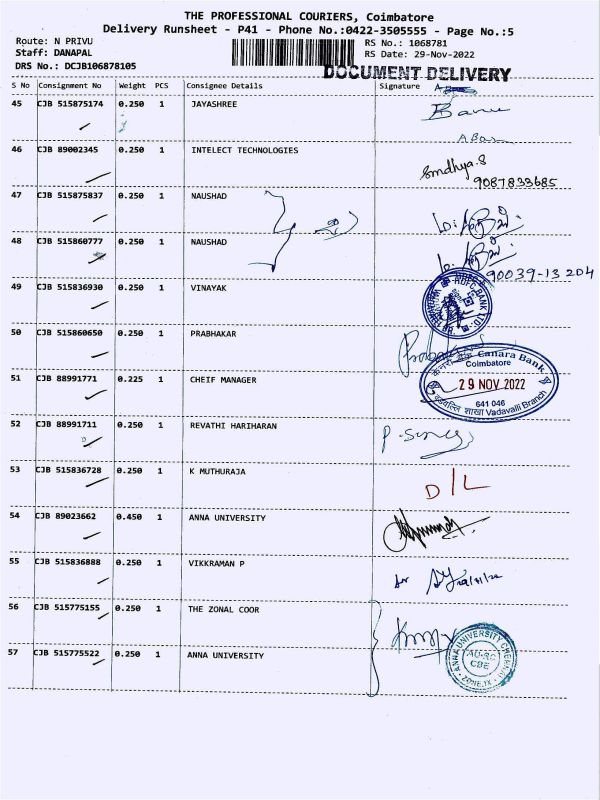 THE PROFESSIONAL COURIERS, Coimbatore
Delivery Runsheet - P41 - Phone No.:0422-3505555 - Page No.:5
Route: N PRIVU
RS No.: 1068781
Staff: DANAPAL
RS Date: 29-Nov-2022
DRS No.: DCJB106878105
DOCUMENT DELIVERY
S No Consignment No Weight PCS Consignee Details Signature
45 CJB 515875174 0.250 1 JAYASHREE Banu
46 CJB 89002345 0.250 1 INTELECT TECHNOLOGIES Sandhya.S
9087833685
47 CJB 515875837 0.250 1 NAUSHAD
48 CJB 515860777 0.250 1 NAUSHAD
90039-13204
49 CJB 515836930 0.250 1 VINAYAK
HDFC BANK LTD.
50 CJB 515860650 0.250 1 PRABHAKAR
Canara Bank
Coimbatore
51 CJB 88991771 0.225 1 CHEIF MANAGER 29 NOV 2022
641 046
शाखा Vadavalli Branch
52 CJB 88991711 0.250 1 REVATHI HARIHARAN
53 CJB 515836728 0.250 1 K MUTHURAJA D/L
54 CJB 89023662 0.450 1 ANNA UNIVERSITY
55 CJB 515836888 0.250 1 VIKKRAMAN P
56 CJB 515775155 0.250 1 THE ZONAL COOR
57 CJB 515775522 0.250 1 ANNA UNIVERSITY
ANNA UNIVERSITY CHENNAI
AU-RC
CBE